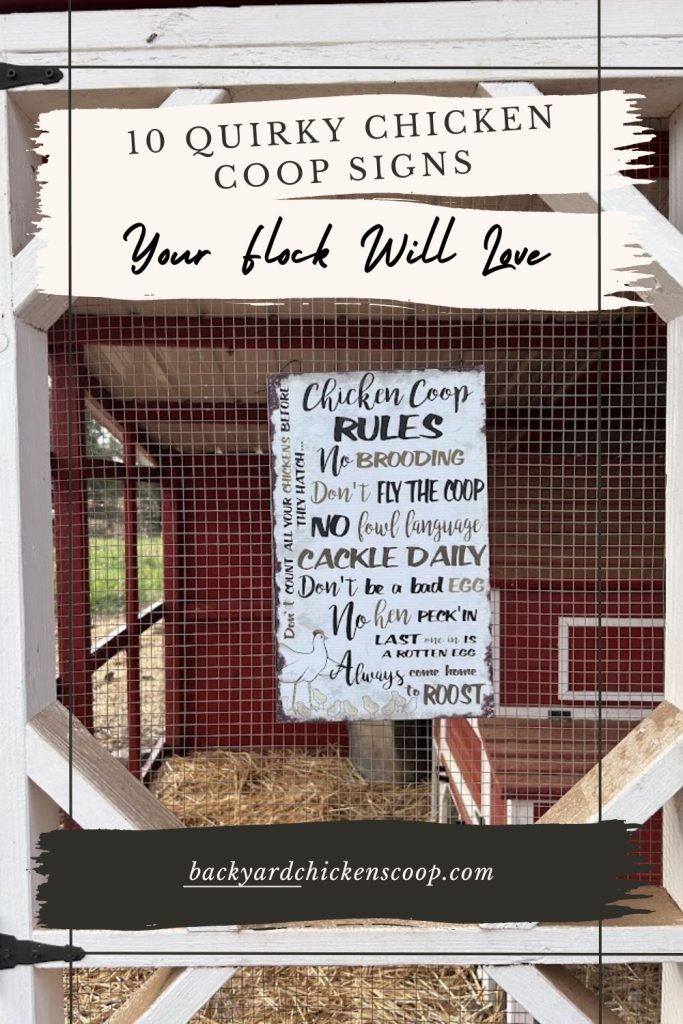 10 QUIRKY CHICKEN
COOP SIGNS
Your flock Will Love
Chicken Coop
RULES
No BROODING
Don't FLY THE COOP
NO fowl language
CACKLE DAILY
Don't be a bad EGG
No hen PECK'IN
LAST one in IS
A ROTTEN EGG
Always come home
to ROOST
DON'T COUNT ALL YOUR CHICKENS BEFORE
THEY HATCH...
backyardchickenscoop.com